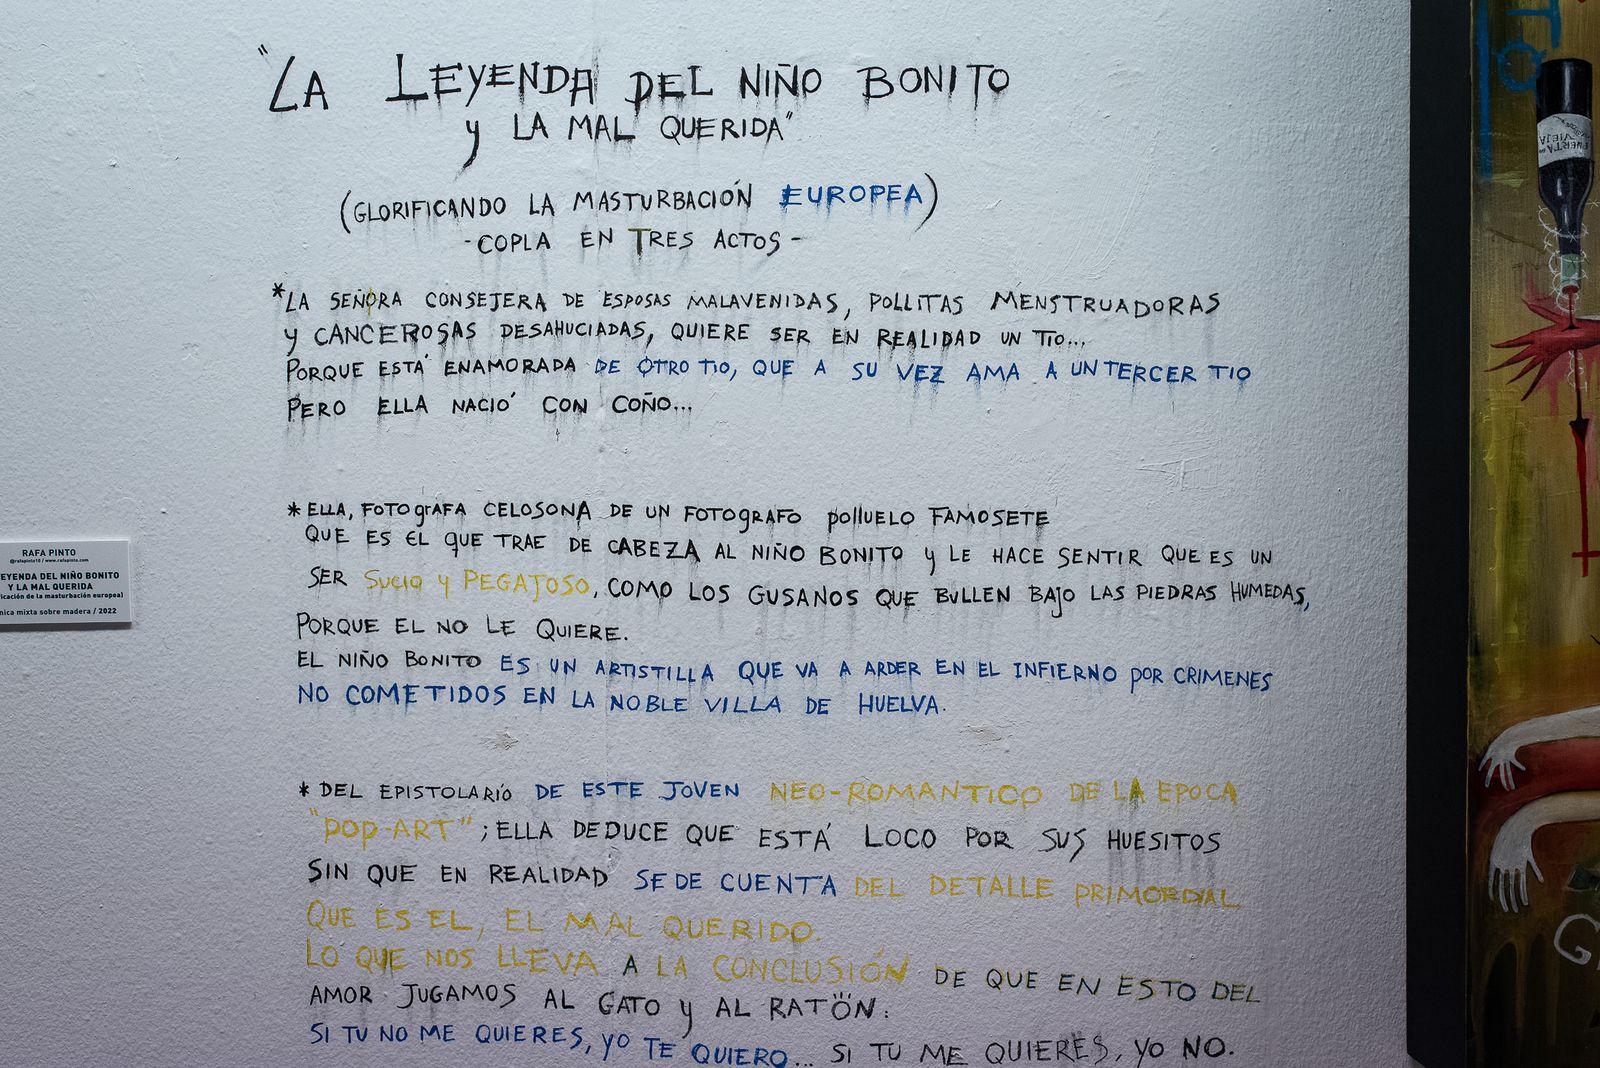 "LA LEYENDA DEL NIÑO BONITO
y LA MAL QUERIDA"
(GLORIFICANDO LA MASTURBACIÓN EUROPEA)
-COPLA EN TRES ACTOS-
*LA SEÑORA CONSEJERA DE ESPOSAS MALAVENIDAS, POLLITAS MENSTRUADORAS
y CANCEROSAS DESAHUCIADAS, QUIERE SER EN REALIDAD UN TIO...
PORQUE ESTÁ ENAMORADA DE OTRO TIO, QUE A SU VEZ AMA A UN TERCER TIO
PERO ELLA NACIÓ CON COÑO...
*ELLA, FOTOGRAFA CELOSONA DE UN FOTOGRAFO POLLUELO FAMOSETE
QUE ES EL QUE TRAE DE CABEZA AL NIÑO BONITO y LE HACE SENTIR QUE ES UN
SER SUCIO y PEGAJOSO, COMO LOS GUSANOS QUE BULLEN BAJO LAS PIEDRAS HUMEDAS,
PORQUE EL NO LE QUIERE.
EL NIÑO BONITO ES UN ARTISTILLA QUE VA A ARDER EN EL INFIERNO POR CRIMENES
NO COMETIDOS EN LA NOBLE VILLA DE HUELVA.
*DEL EPISTOLARÍO DE ESTE JOVEN NEO-ROMANTICO DE LA EPOCA
"POP-ART"; ELLA DEDUCE QUE ESTÁ LOCO POR SUS HUESITOS
SIN QUE EN REALIDAD SE DE CUENTA DEL DETALLE PRIMORDIAL
QUE ES EL, EL MAL QUERIDO.
LO QUE NOS LLEVA A LA CONCLUSIÓN DE QUE EN ESTO DEL
AMOR JUGAMOS AL GATO y AL RATÖN:
SI TU NO ME QUIERES, yO TE QUIERO... SI TU ME QUIERES, yO NO.
RAFA PINTO
@rafapinto10 / www.rafapinto.com
EYENDA DEL NIÑO BONITO
Y LA MAL QUERIDA
ficación de la masturbación europea)
nica mixta sobre madera / 2022
TO
PUERTA
VIEJA
G